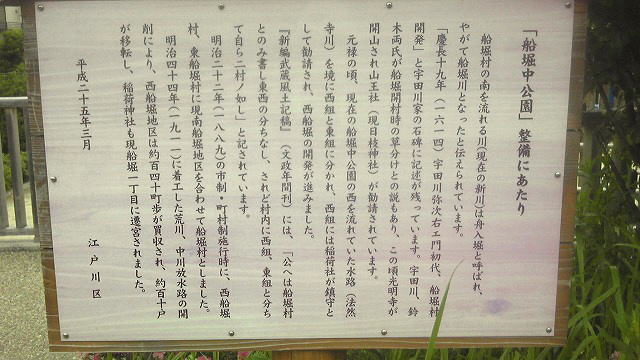 「船堀中公園」整備にあたり
船堀村の南を流れる川(現在の新川)は舟入堀と呼ばれ、
やがて船堀川となったと伝えられています。
「慶長十九年(一六一四)宇田川弥次右エ門初代、船堀村
開発」と宇田川家の石碑に記述が残っています。宇田川、鈴
木両氏が船堀開村時の草分けとの説もあり、この頃光明寺が
開山され山王社(現日枝神社)が勧請されています。
元禄の頃、現在の船堀中公園の西を流れていた水路(法然
寺川)を境に西組と東組に分かれ、西組には稲荷社が鎮守と
して勧請され、西船堀の開発が進みました。
『新編武蔵風土記稿』(文政年間刊)には、「公へは船堀村
とのみ書し東西の分ちなし、されど村内に西組、東組と分ち
て自ら二村ノ如し」と記されています。
明治二十二年(一八八九)の市制・町村制施行時に、西船堀
村、東船堀村に現南船堀地区を合わせて船堀村としました。
明治四十四年(一九一一)に着工した荒川、中川放水路の開
削により、西船堀地区は約百四十町歩が買収され、約百十戸
が移転し、稲荷神社も現船堀一丁目に遷宮されました。
平成二十五年三月
江戸川区